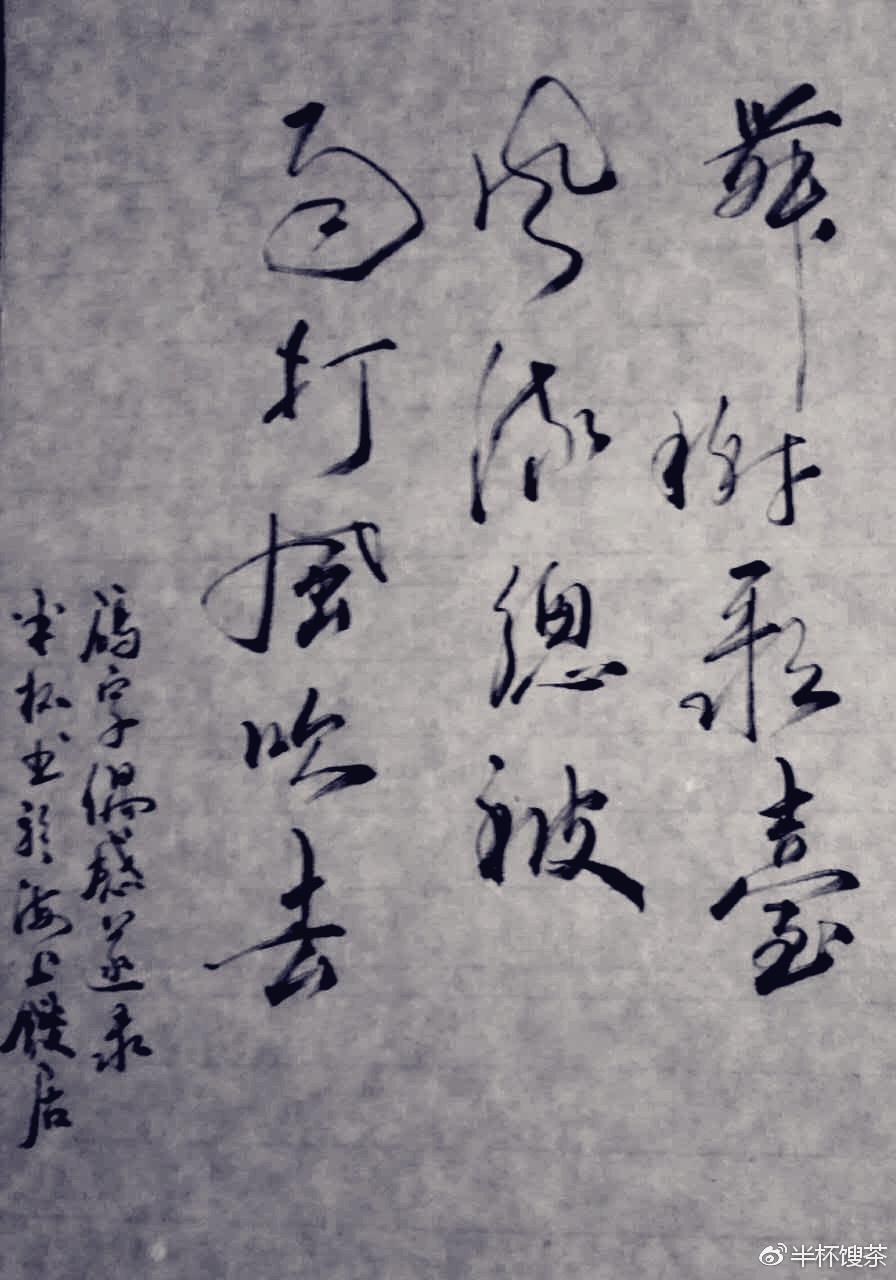 舞榭歌臺
風流總被
雨打風吹去
碼字偶感並录
半杯书於海上馊居
半杯馊茶